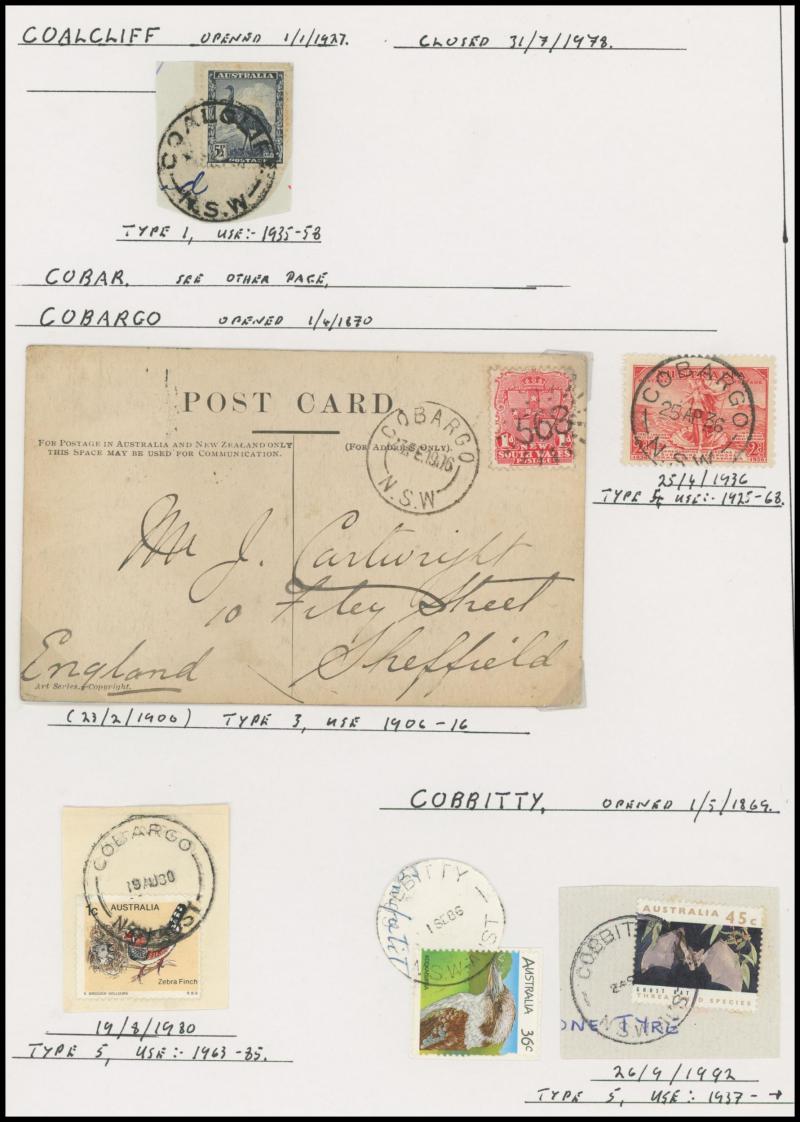 COALCLIFF OPENED 1/1/1927. CLOSED 31/7/1978.
AUSTRALIA
5½
POSTAGE
COALCLIFF
N.S.W
d
TYPE 1, USE:- 1935-58
COBAR. SEE OTHER PAGE,
COBARGO OPENED 1/4/1870
POST CARD
FOR POSTAGE IN AUSTRALIA AND NEW ZEALAND ONLY
THIS SPACE MAY BE USED FOR COMMUNICATION.
(FOR ADDRESS ONLY).
COBARGO
N.S.W
568
NEW
SOUTH WALES
POSTAGE
COBARGO
25 AP 36
N.S.W
2D
25/4/1936
TYPE 5, USE:- 1925-63.
Mr J. Cartwright
10 Filey Street
Sheffield
England
Art Series, Copyright.
(23/2/1906) TYPE 3, USE 1906-16
COBBITTY, OPENED 1/5/1869.
COBARGO
19 AU 80
AUSTRALIA
Zebra Finch
19/8/1980
TYPE 5, USE:- 1963-85.
COBBITTY
1 SE 86
N.S.W-
AUSTRALIA
36c
COBBITTY
N.S.W
AUSTRALIA 45c
GHOST BAT
THREATENED SPECIES
ONE TYRE
26/9/1992
TYPE 5, USE:- 1937- →